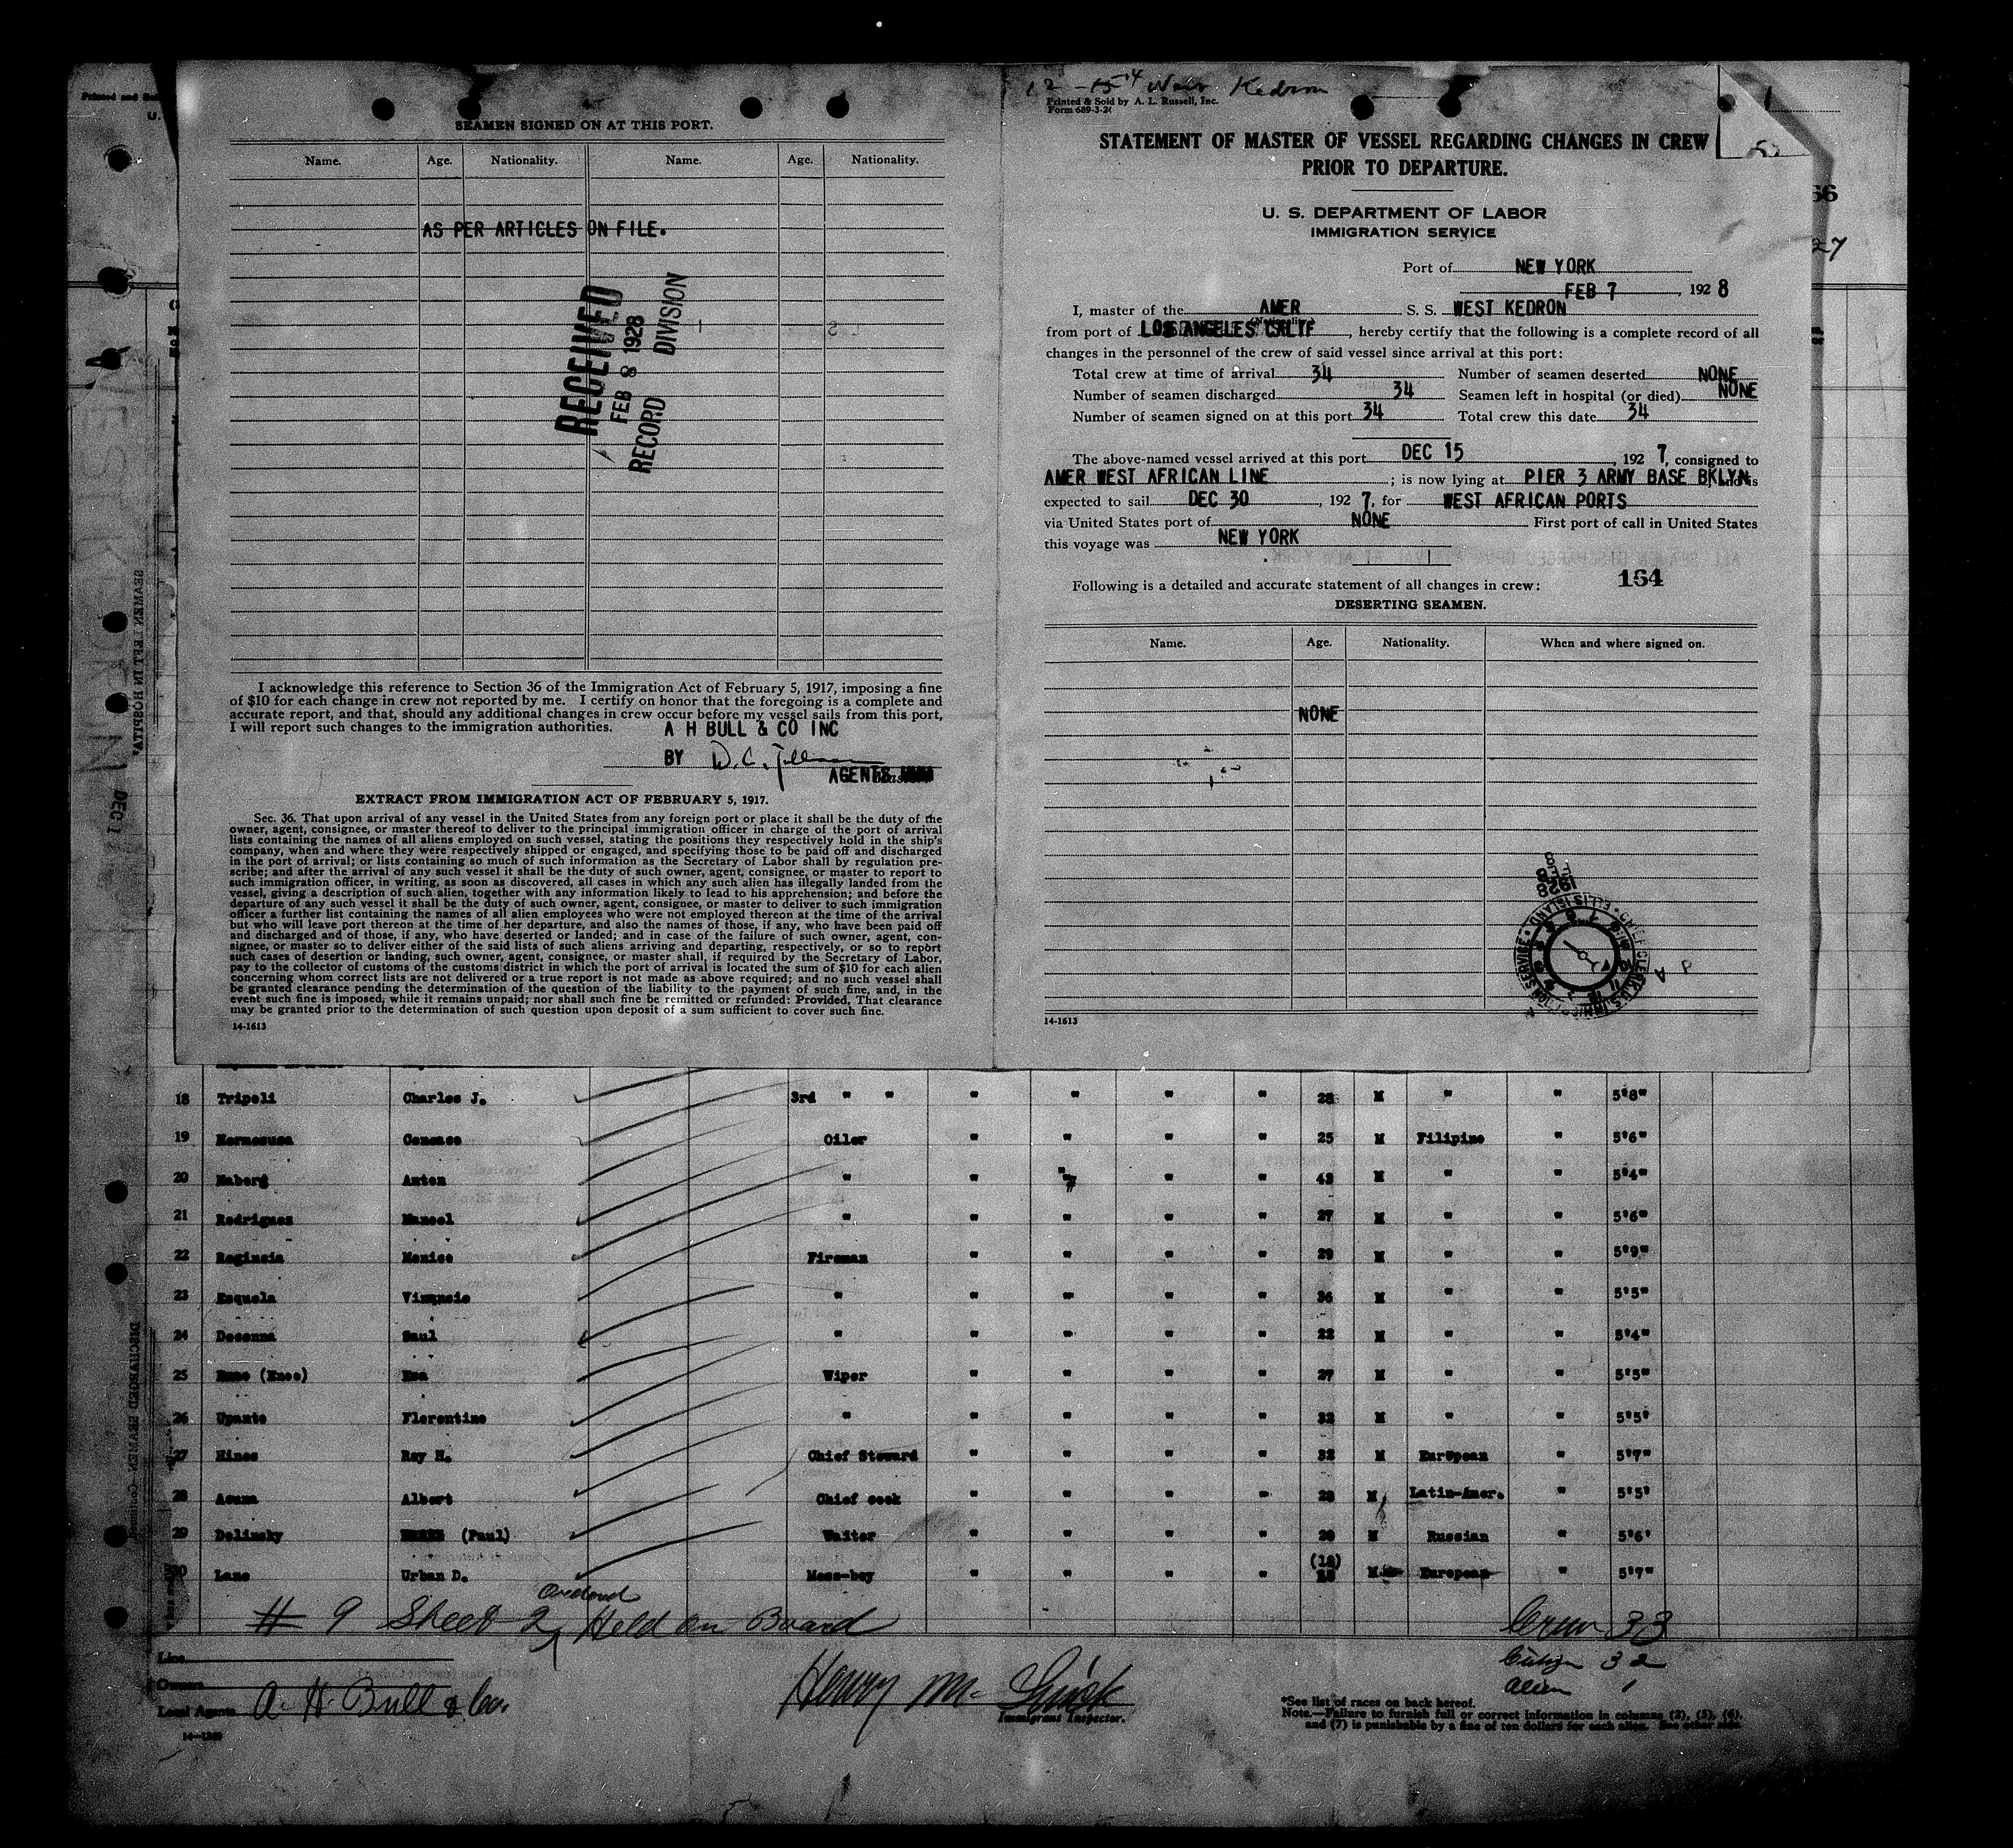 SEAMEN SIGNED ON AT THIS PORT.
Name. Age. Nationality. Name. Age. Nationality.
AS PER ARTICLES ON FILE.
RECEIVED
FEB 8 1928
RECORD DIVISION
I acknowledge this reference to Section 36 of the Immigration Act of February 5, 1917, imposing a fine
of $10 for each change in crew not reported by me. I certify on honor that the foregoing is a complete and
accurate report, and that, should any additional changes in crew occur before my vessel sails from this port,
I will report such changes to the immigration authorities.
A H BULL & CO INC
BY D. C.
AGENTS
EXTRACT FROM IMMIGRATION ACT OF FEBRUARY 5, 1917.
Sec. 36. That upon arrival of any vessel in the United States from any foreign port or place it shall be the duty of the
owner, agent, consignee, or master thereof to deliver to the principal immigration officer in charge of the port of arrival
lists containing the names of all aliens employed on such vessel, stating the positions they respectively hold in the ship's
company, when and where they were respectively shipped or engaged, and specifying those to be paid off and discharged
in the port of arrival; or lists containing so much of such information as the Secretary of Labor shall by regulation pre-
scribe; and after the arrival of any such vessel it shall be the duty of such owner, agent, consignee, or master to report to
such immigration officer, in writing, as soon as discovered, all cases in which any such alien has illegally landed from the
vessel, giving a description of such alien, together with any information likely to lead to his apprehension; and before the
departure of any such vessel it shall be the duty of such owner, agent, consignee, or master to deliver to such immigration
officer a further list containing the names of all alien employees who were not employed thereon at the time of the arrival
but who will leave port thereon at the time of her departure, and also the names of those, if any, who have been paid off
and discharged and of those, if any, who have deserted or landed; and in case of the failure of such owner, agent, con-
signee, or master so to deliver either of the said lists of such aliens arriving and departing, respectively, or so to report
such cases of desertion or landing, such owner, agent, consignee, or master shall, if required by the Secretary of Labor,
pay to the collector of customs of the customs district in which the port of arrival is located the sum of $10 for each alien
concerning whom correct lists are not delivered or a true report is not made as above required; and no such vessel shall
be granted clearance pending the determination of the question of the liability to the payment of such fine, and, in the
event such fine is imposed, while it remains unpaid; nor shall such fine be remitted or refunded: Provided, That clearance
may be granted prior to the determination of such question upon deposit of a sum sufficient to cover such fine.
14-1613
12-15 West Kedron
Printed & Sold by A. L. Russell, Inc.
Form 689-3-26
STATEMENT OF MASTER OF VESSEL REGARDING CHANGES IN CREW
PRIOR TO DEPARTURE.
U. S. DEPARTMENT OF LABOR
IMMIGRATION SERVICE
Port of NEW YORK
FEB 7, 1928
I, master of the AMER S. S. WEST KEDRON
from port of LOS ANGELES CALIF, hereby certify that the following is a complete record of all
changes in the personnel of the crew of said vessel since arrival at this port:
Total crew at time of arrival 34 Number of seamen deserted NONE
Number of seamen discharged 34 Seamen left in hospital (or died) NONE
Number of seamen signed on at this port 34 Total crew this date 34
The above-named vessel arrived at this port DEC 15, 1927, consigned to
AMER WEST AFRICAN LINE; is now lying at PIER 3 ARMY BASE BKLYN, and is
expected to sail DEC 30, 1927, for WEST AFRICAN PORTS
via United States port of NONE First port of call in United States
this voyage was NEW YORK
Following is a detailed and accurate statement of all changes in crew: 164
DESERTING SEAMEN.
Name. Age. Nationality. When and where signed on.
NONE
14-1613
18 Tripoli Charles J. 3rd " " " " " " 28 M " " 5'8"
19 Oiler " " " " 25 M Filipino " 5'6"
20 Maberg Anton " " " " " 43 M " " 5'4"
21 Rodrigues Manoel " " " " " 27 M " " 5'6"
22 Reginsia Monico Fireman " " " " 29 M " " 5'9"
23 Esquela " " " " " 36 M " " 5'5"
24 Saul " " " " " 22 M " " 5'4"
25 Wiper " " " " 27 M " " 5'5"
26 Upante Florentino " " " " " 32 M " " 5'5'
27 Hines Roy H. Chief Steward " " " " 32 M European " 5'7"
28 Albert Chief cook " " " " 28 M Latin-Amer. " 5'5'
29 Dolinsky (Paul) Waiter " " " " 20 M Russian " 5'6'
30 Lane Urban D. Mess-boy " " " " (18) 18 M European " 5'7"
# 9 Sheet 2, Held on Board
Crew 33
32
Alien 1
Line
Owners
Local Agents A. H. Bull & Co.
Immigrant Inspector.
*See list of races on back hereof.
Note.—Failure to furnish full or correct information in columns (2), (5), (6),
and (7) is punishable by a fine of ten dollars for each alien. See other side.